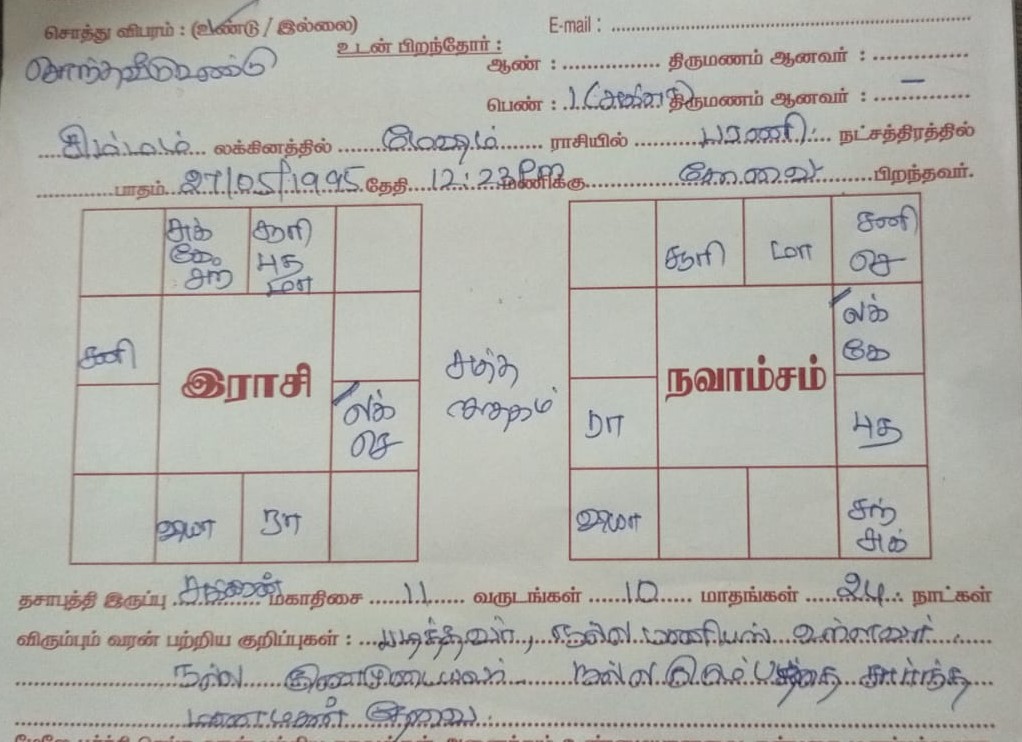 சொத்து விபரம் : (உண்டு / இல்லை) E-mail :
சொந்தவீடு உண்டு
உடன் பிறந்தோர் :
ஆண் : திருமணம் ஆனவர் :
பெண் : 1 திருமணம் ஆனவர் : –
சிம்மம் லக்கினத்தில் மேஷம் ராசியில் பரணி நட்சத்திரத்தில்
பாதம் 27/05/1995 தேதி 12:23 PM மணிக்கு கோவை பிறந்தவர்.
சுக் சூரி
கே புத
சந் மா
சனி
இராசி
லக்
செ
வியா ரா
சுத்த
சனி
சூரி மா செ
லக்
கே
நவாம்சம்
ரா புத
வியா சந்
சுக்
தசாபுத்தி இருப்பு சுக்கிரன் மகாதிசை 11 வருடங்கள் 10 மாதங்கள் 24 நாட்கள்
விரும்பும் வரன் பற்றிய குறிப்புகள் : படித்தவர், நல்ல பணியில் உள்ளவர்
நல்ல குணமுடையவர் நல்ல குடும்பத்தை சார்ந்த
மணமகன் தேவை.